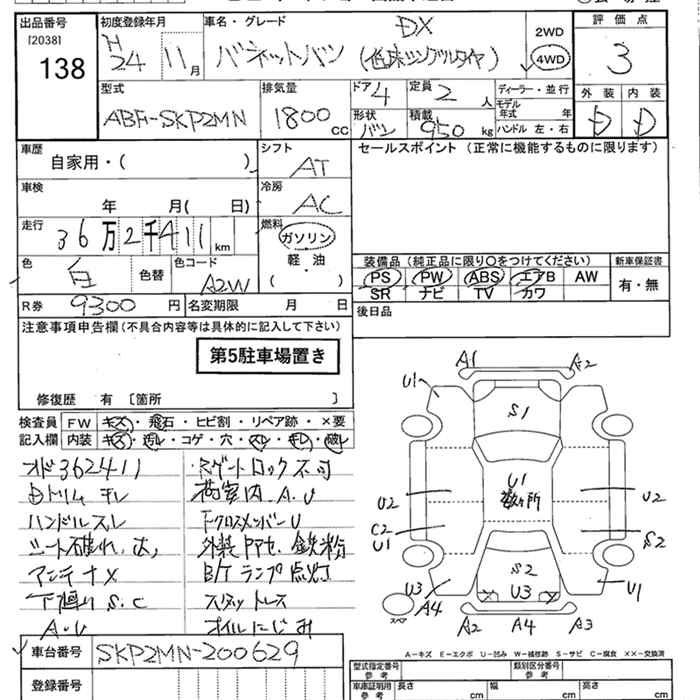 出品番号
[2038]
138
初度登録年月
H 24 11月
車名・グレード
DX
バネットバン (低床シングルタイヤ)
2WD
4WD
評価点
3
型式
ABF-SKP2MN
排気量
1800 CC
ドア 4
定員 2 人
形状 バン
積載 950 kg
ディーラー・並行
モデル年式 年
ハンドル 左・右
外装 内装
D D
車歴
自家用・( )
シフト
AT
セールスポイント(正常に機能するものに限ります)
車検
年 月( 日)
冷房
AC
走行
36万2千411 km
燃料
ガソリン
軽・油
( )
色 白 色替
色コード A2W
装備品(純正品に限り○をつけてください)
新車保証書
PS PW ABS エアB AW
SR ナビ TV カワ
有・無
R券 9300円 名変期限 月 日
後日品
注意事項申告欄(不具合内容等は具体的に記入して下さい)
第5駐車場置き
修復歴 有 [箇所 ]
検査員 FW キズ・飛石・ヒビ割・リペア跡・×要
記入欄 内装 キズ・汚レ・コゲ・穴・スレ・キレ・破レ
オド362411
Dトリム キレ
ハンドルスレ
シート破れ.
アンテナX
下廻り S.C
A.U
Rゲートロック不可
荷室内.A.U
FクロスメンバーU
外装 鉄粉
B/Tランプ点灯
スタットレス
オイルにじみ
A1
A2
U1
S1
U1
U2
U2
C2
U1
S2
S2
U3
U3
A4
U1
スペア
A2 A4 A3
A-キズ E-エクボ U-凹み W-補修跡 S-サビ C-腐食 XX-交換済
車台番号 SKP2MN-200629
登録番号
型式指定番号 参考
類別区分番号 参考
車庫証明用 参考
長さ cm
幅 cm
高さ cm